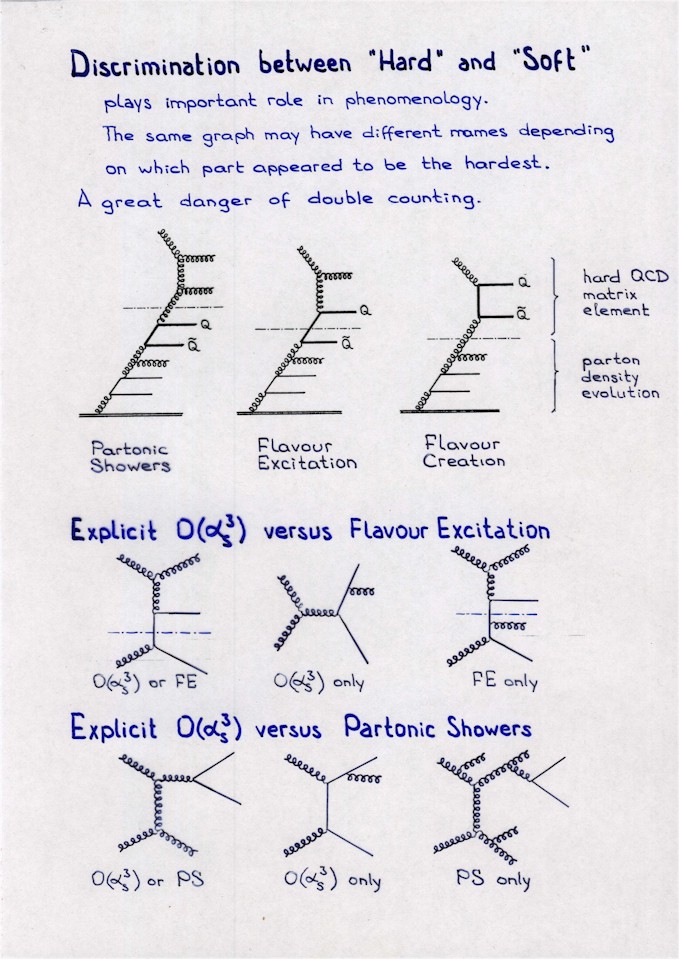 Discrimination between "Hard" and "Soft"
plays important role in phenomenology.
The same graph may have different names depending
on which part appeared to be the hardest.
A great danger of double counting.
Q
Q̃
Q
Q̃
Q
Q̃
hard QCD
matrix
element
parton
density
evolution
Partonic
Showers
Flavour
Excitation
Flavour
Creation
Explicit O(αₛ³) versus Flavour Excitation
O(αₛ³) or FE
O(αₛ³) only
FE only
Explicit O(αₛ³) versus Partonic Showers
O(αₛ³) or PS
O(αₛ³) only
PS only